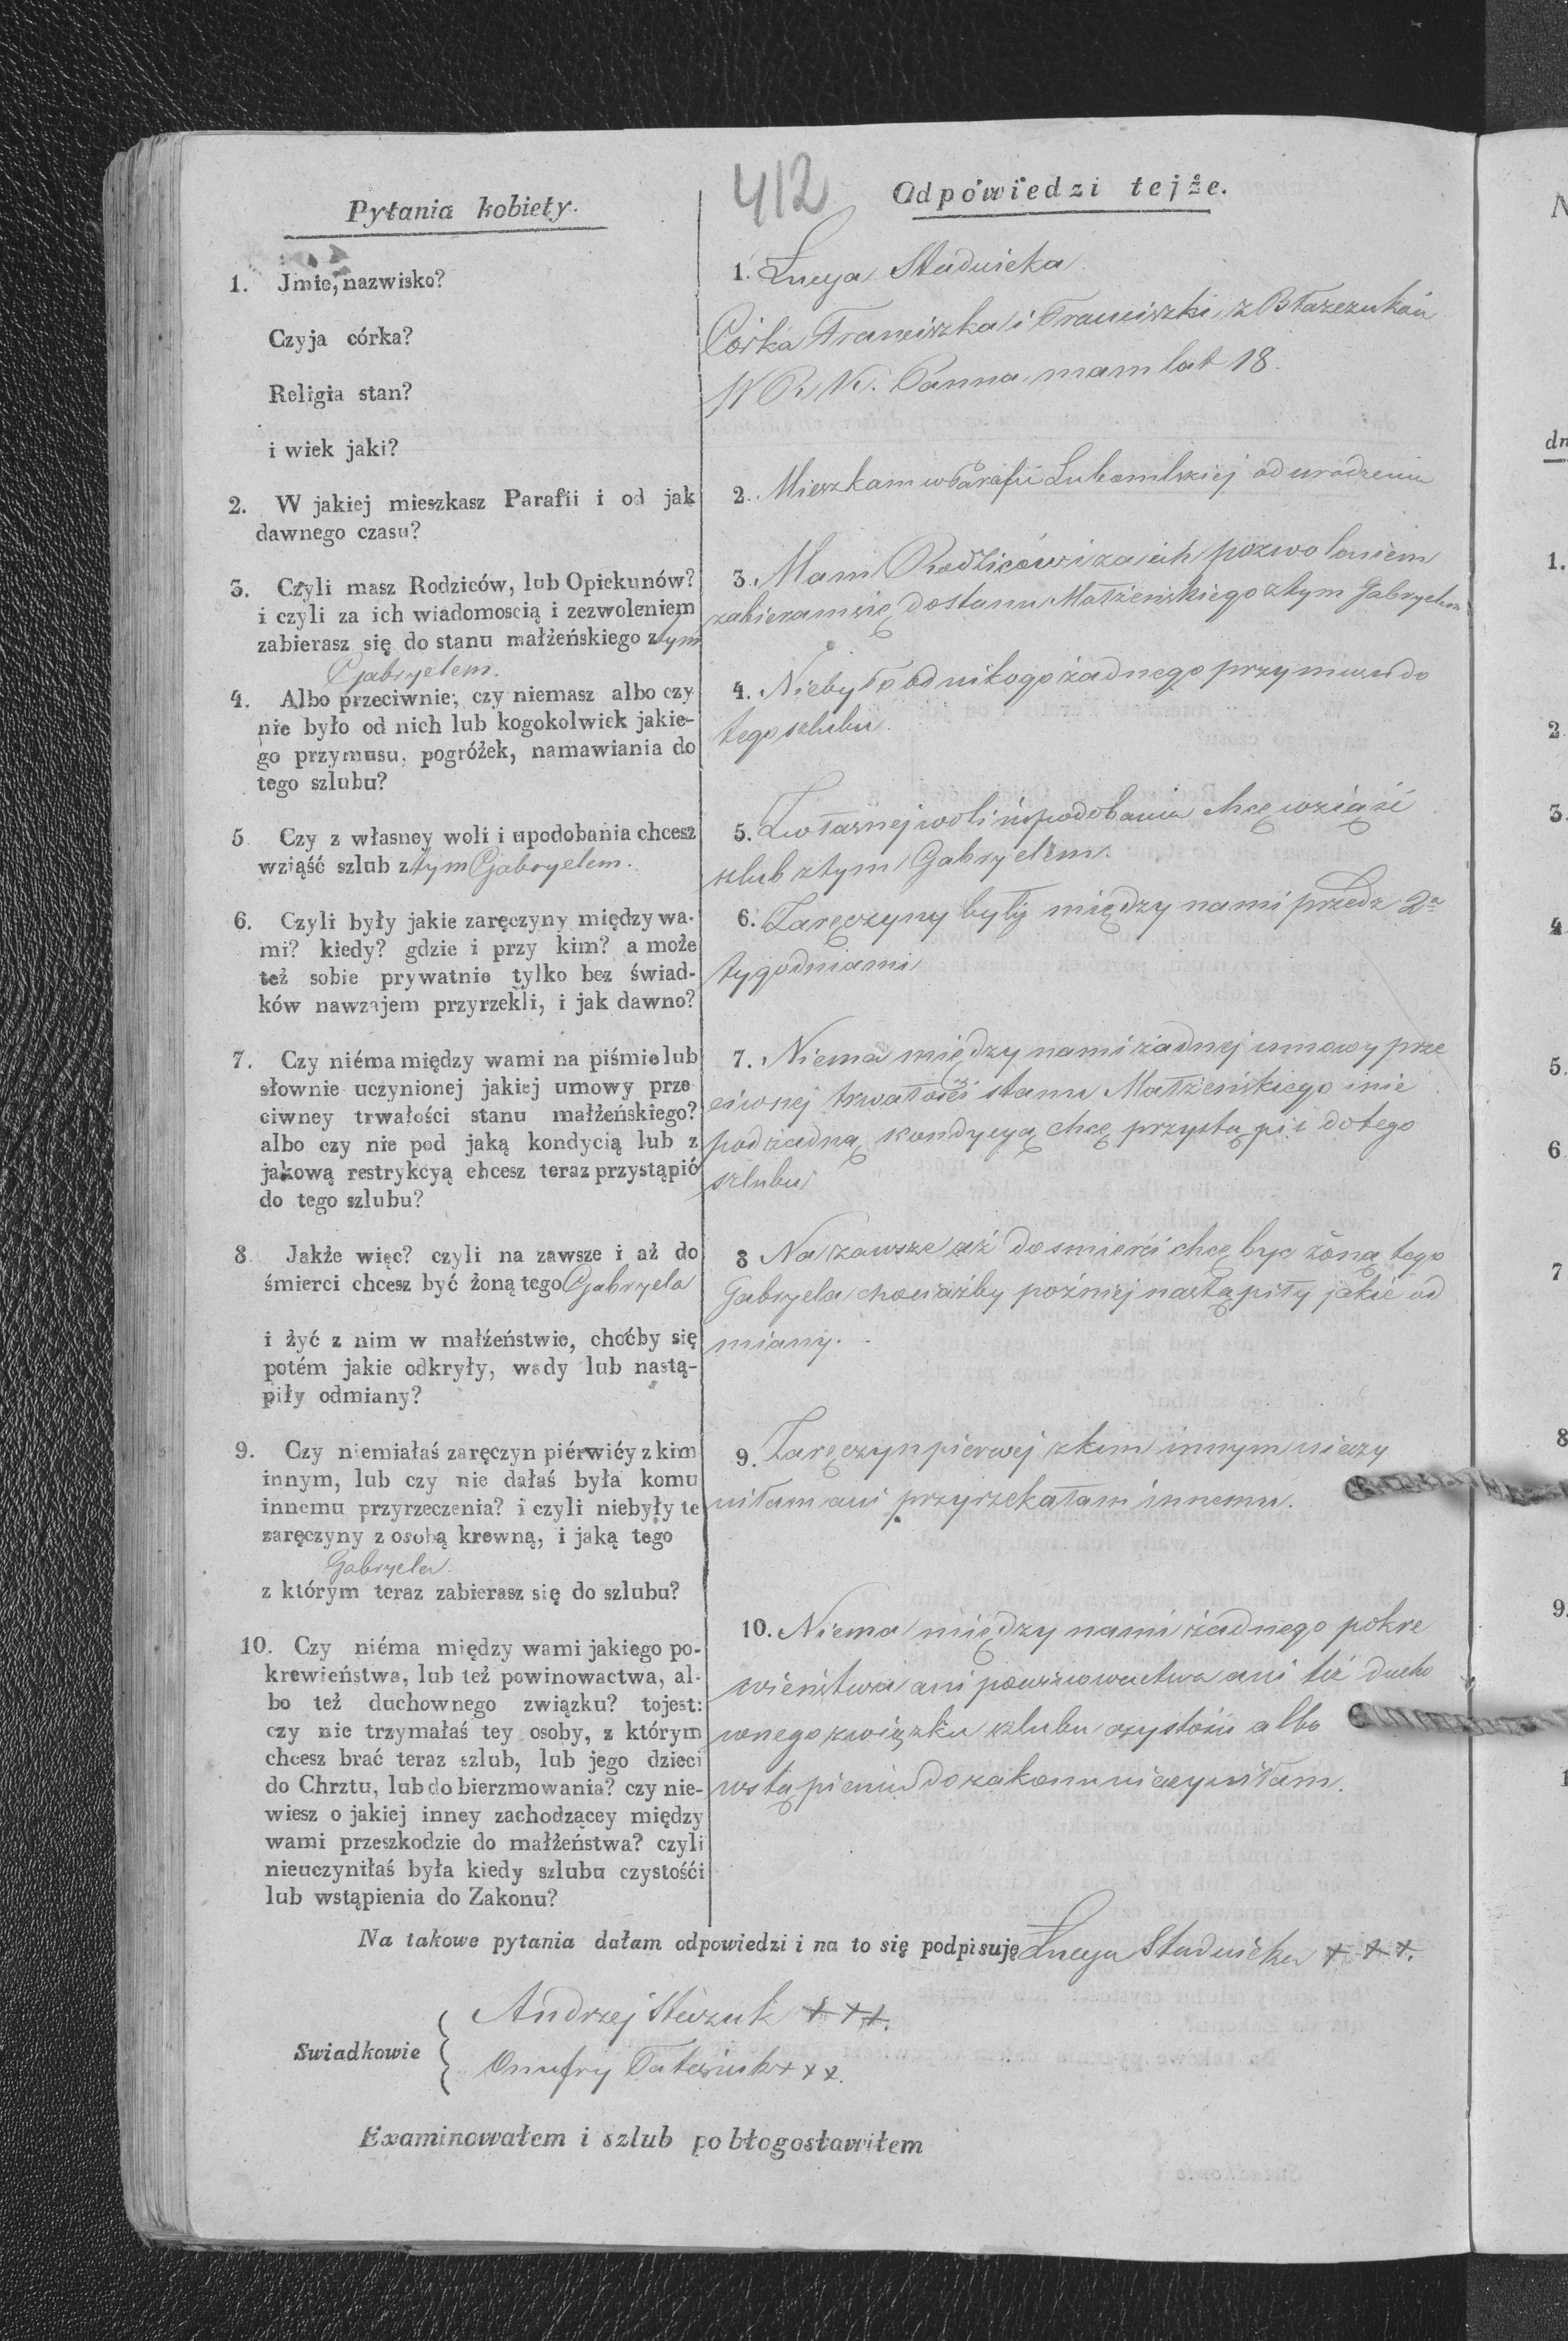 412
Pytania kobiety.
1. Jmie, nazwisko?
Czyja córka?
Religia stan?
i wiek jaki?
2. W jakiej mieszkasz Parafii i od jak
dawnego czasu?
3. Czyli masz Rodziców, lub Opiekunów?
i czyli za ich wiadomoscią i zezwoleniem
zabierasz się do stanu małżeńskiego z tym
Gabryelem.
4. Albo przeciwnie; czy niemasz albo czy
nie było od nich lub kogokolwiek jakie-
go przymusu, pogróżek, namawiania do
tego szlubu?
5 Czy z własney woli i upodobania chcesz
wziąść szlub z tym Gabryelem.
6. Czyli były jakie zaręczyny między wa-
mi? kiedy? gdzie i przy kim? a może
też sobie prywatnie tylko bez świad-
ków nawzajem przyrzekli, i jak dawno?
7. Czy niéma między wami na piśmie lub
słownie uczynionej jakiej umowy prze
ciwney trwałości stanu małżeńskiego?
albo czy nie pod jaką kondycią lub z
jakową restrykcyą chcesz teraz przystąpić
do tego szlubu?
8. Jakże więc? czyli na zawsze i aż do
śmierci chcesz być żoną tego Gabryela
i żyć z nim w małżeństwie, choćby się
potém jakie odkryły, wady lub nastą-
piły odmiany?
9. Czy niemiałaś zaręczyn piérwiéy z kim
innym, lub czy nie dałaś była komu
innemu przyrzeczenia? i czyli niebyły te
zaręczyny z osobą krewną, i jaką tego
Gabryela
z którym teraz zabierasz się do szlubu?
10. Czy niéma między wami jakiego po-
krewieństwa, lub też powinowactwa, al-
bo też duchownego związku? tojest:
czy nie trzymałaś tey osoby, z którym
chcesz brać teraz szlub, lub jego dzieci
do Chrztu, lub do bierzmowania? czy nie-
wiesz o jakiej inney zachodzącey między
wami przeszkodzie do małżeństwa? czyli
nieuczyniłaś była kiedy szlubu czystośći
lub wstąpienia do Zakonu?
Odpowiedzi tejże.
1. Łucya Studnicka
Córka Franciszka i Franciszki z Błaszczuków
W R. K. Panna mam lat 18.
2. Mieszkam w Parafii Lubomlskiej od urodzenia
3. Mam Rodziców i za ich pozwoleniem
zabieram się do stanu Małżeńskiego z tym Gabryelem
4. Niebyło od nikogo żadnego przymusu do
tego szlubu.
5. Z własnej woli i upodobania chcę wziąść
szlub z tym Gabryelem.
6. Zaręczyny były między nami przedz 2a
tygodniami
7. Niema między nami żadnej umowy prze
ciwnej trwałości stanu Małżeńskiego i nie
pod żadną kondycyą chcę przystąpić do tego
szlubu
8 Na zawsze aż do smierci chcę byc żoną tego
Gabryela chociażby poźniej nastąpiły jakie od
miany.
9. Zaręczyn pierwej z kim innym nieczy
niłam ani przyrzekałam innemu.
10. Niema między nami żadnego pokre
wieństwa ani powinowactwa ani też ducho
wnego związku szlubu czystości albo
wstąpieniu do zakonu nieczyniłam.
Na takowe pytania dałam odpowiedzi i na to się podpisuję Łucya Studnicka + + +.
Swiadkowie
Andrzej + + +.
Onufry + + +.
Examinowałem i szlub pobłogosławiłem